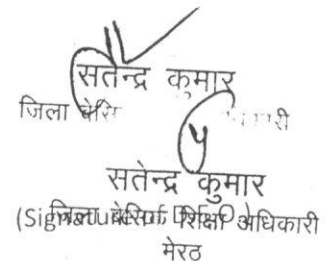 सतेन्द्र कुमार
जिला बेसि
सतेन्द्र कुमार
(Signature of D
जिला बेसिक शिक्षा अधिकारी
मेरठ